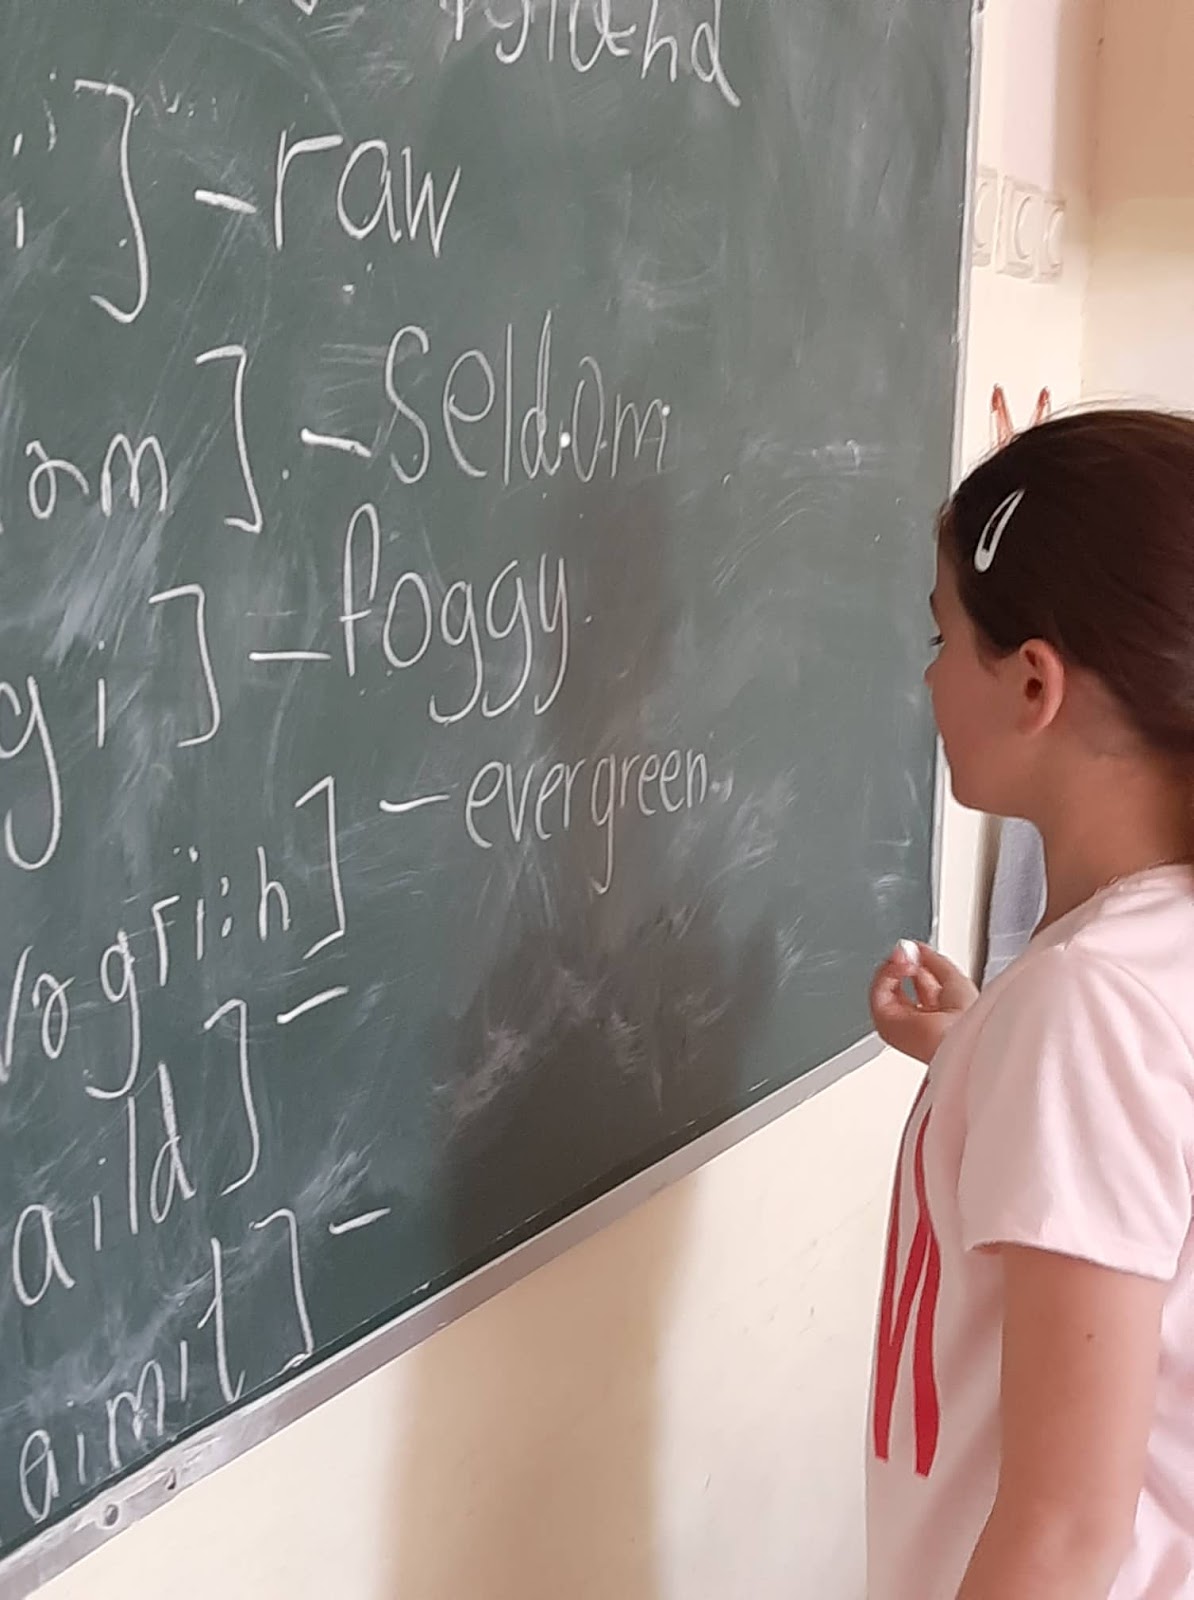 ] - raw
əm] - seldom
gi] - foggy
vəgri:n] - evergreen
aild] -
aimit] -